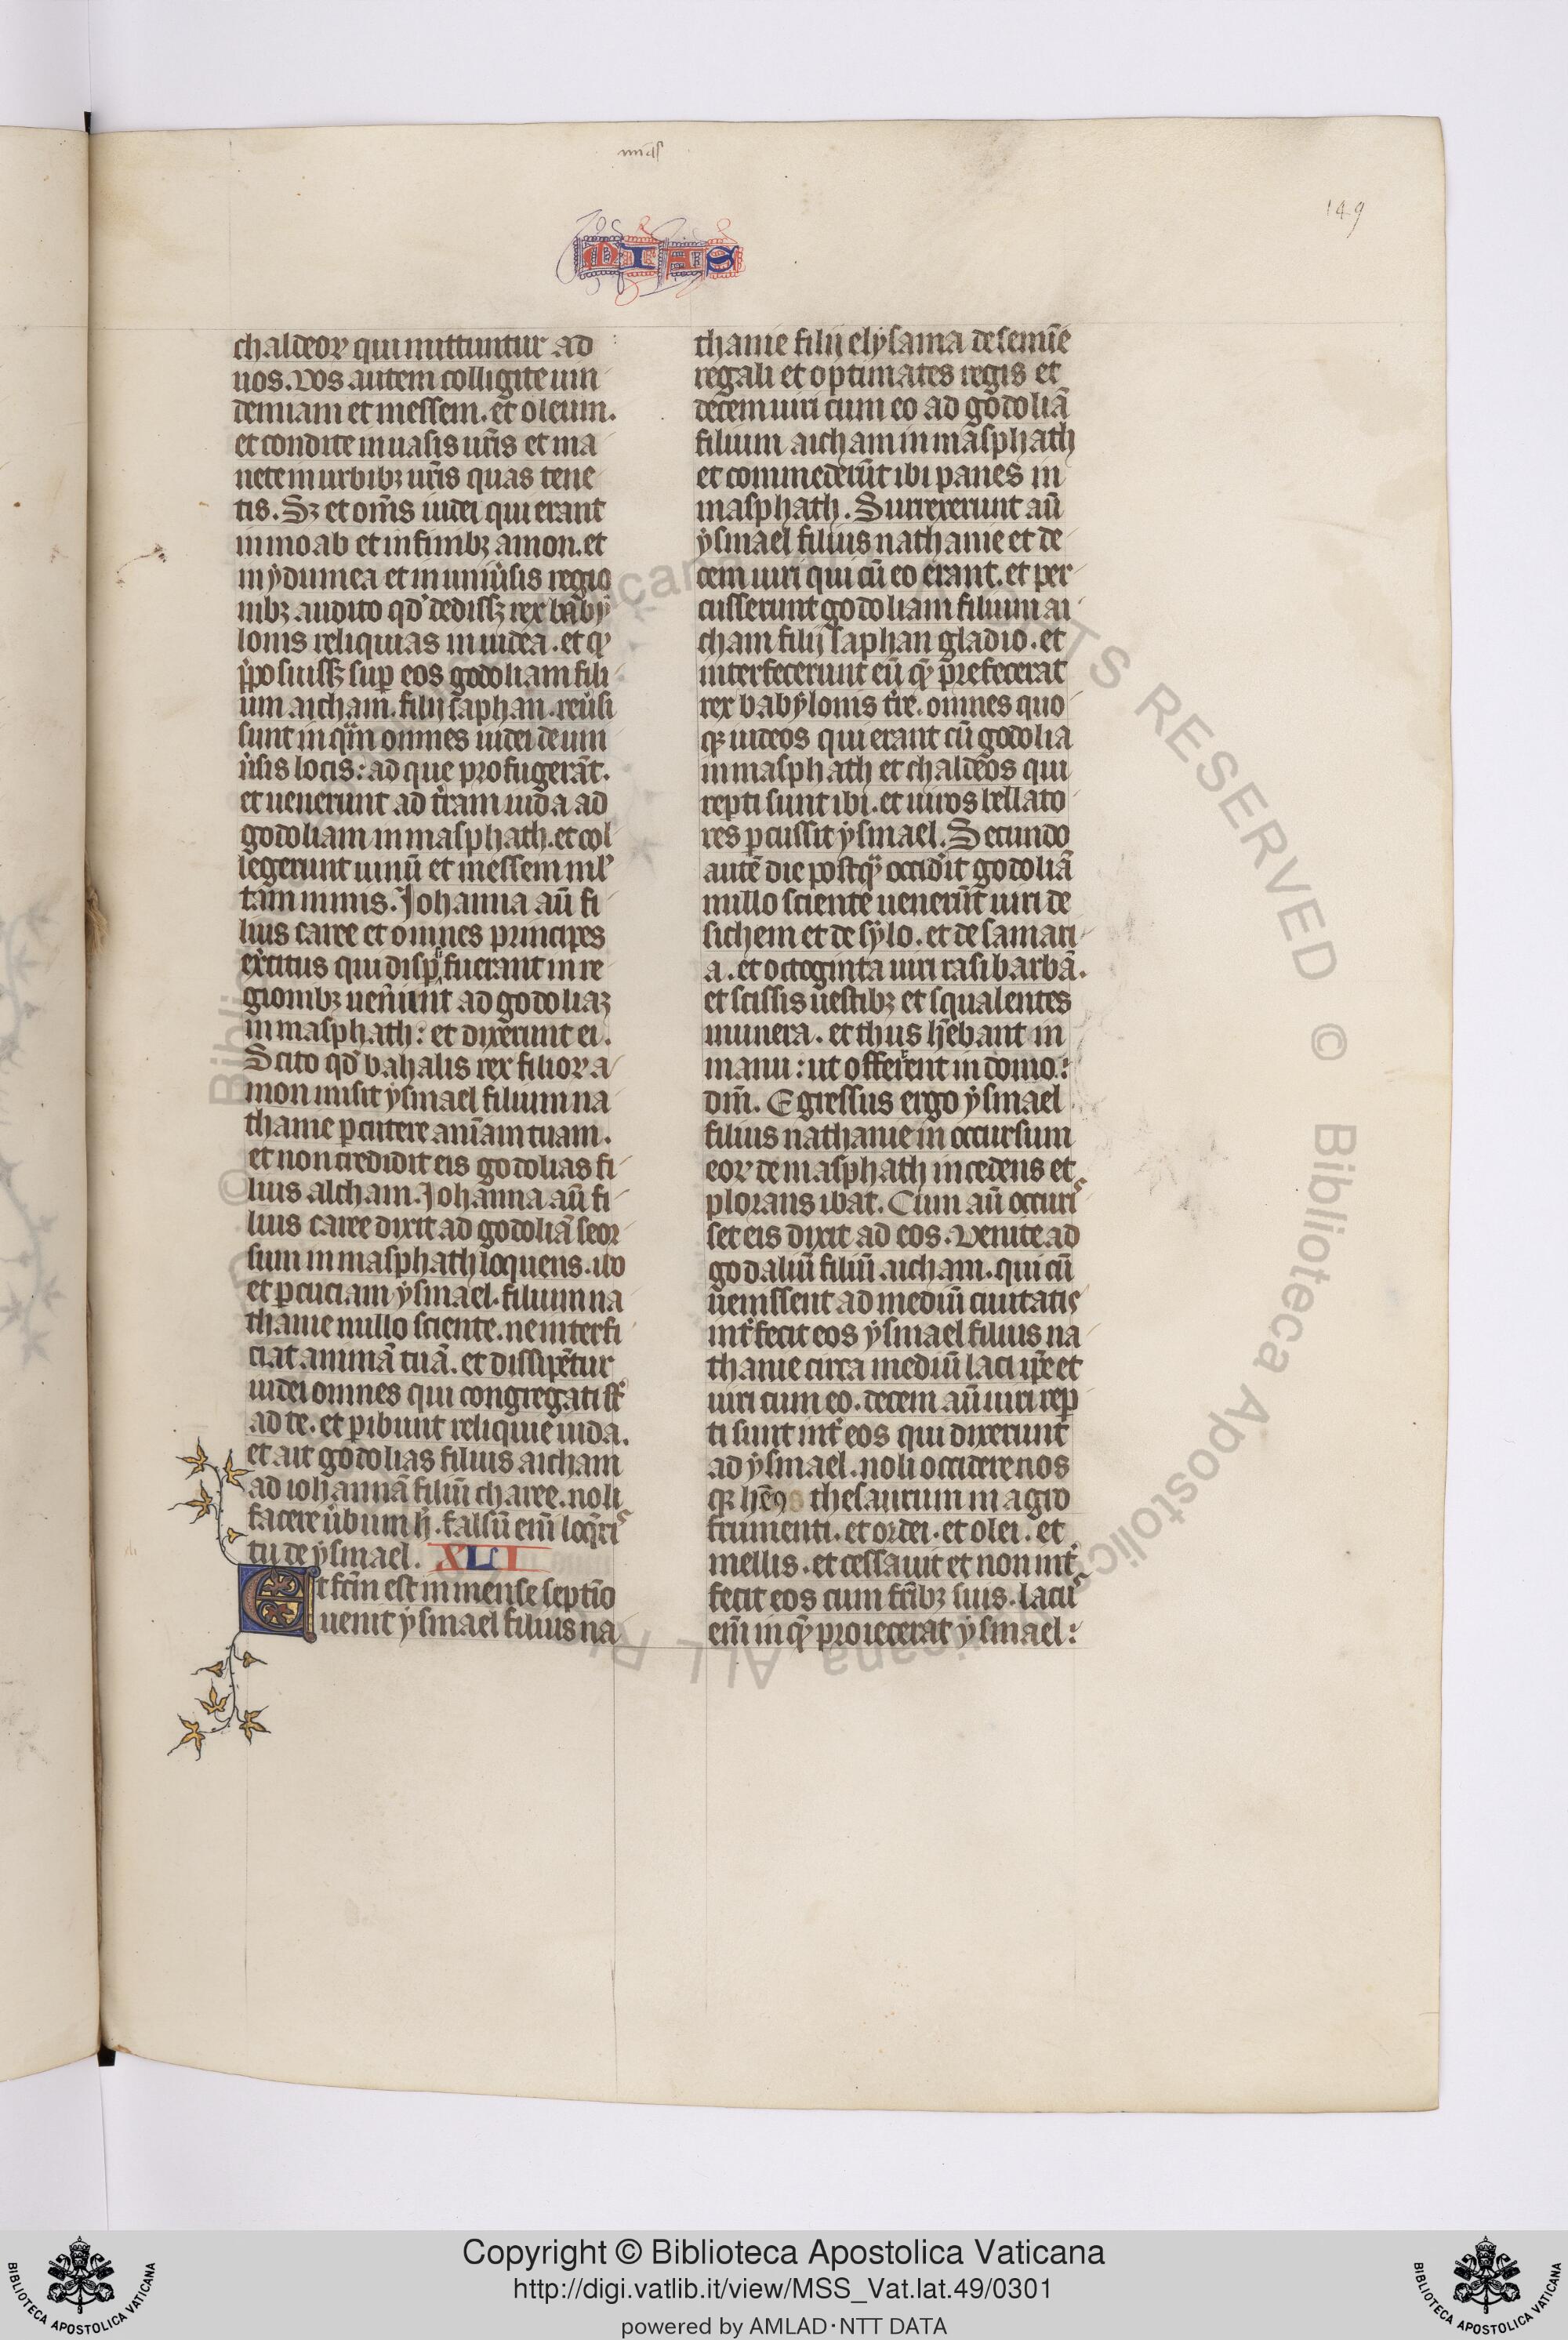 149
MIAS
chaldeoꝝ qui mittuntur ad
uos. Vos autem colligite uin
demiam et messem. et oleum.
et condite in uasis ur̃is et ma
nete in urbibꝫ ur̃is quas tene
tis. Sꝫ et om̃s iudei qui erant
in moab et in finibꝫ amon. et
in ẏdumea et in uniũsis regio
nibꝫ. audito qd̾ dedissꝫ rex babẏ
lonis reliquias in iudea. et qͥ
p̾posuissꝫ suꝑ eos godoliam fili
um aicham. filij saphan. reũsi
sunt inqͣm omnes iudei de uni
ũsis locis: ad que profugerãt.
et uenerunt ad t̾ram iuda ad
godoliam in masphath. et col
legerunt uinũ et messem ml̾
tam nimis. Johanna aũ fi
lius caree et omnes principes
ex̾citus qui disꝑsi fuerant in re
gionibꝫ uen̾unt ad godoliaꝫ
in masphath: et dixerunt ei.
Scito qd̾ bahalis rex filioꝝ a
mon misit ẏsmael filium na
thanie ꝑcutere anĩam tuam.
et non credidit eis godolias fi
lius alcham. Johanna aũ fi
lius caree dixit ad godoliã seor
sum in masphath loquens. ibo
et ꝑcuciam ẏsmael. filium na
thanie nullo sciente. ne interfi
ciat animã tuã. et dissipẽtur
iudei omnes qui congregati st̾
ad te. et ꝑibunt reliquie iuda.
et ait godolias filius aicham
ad iohannã filiũ charee. noli
facere ũbum h̾. falsũ eni̾ loq̾ri
tu de ẏsmael. XLI
Et fc̃m est in mense septĩo
uenit ẏsmael filius na
thanie filij elẏsama de semĩe
regali et optimates regis et
decem uiri cum eo ad godoliã
filium aicham in masphath
et commederũt ibi panes in
masphath. Surrexerunt aũ
ẏsmael filius nathanie et de
cem uiri qui cũ eo erant. et per
cusserunt godoliam filium ai
cham filij saphan gladio. et
interfecerunt eũ qͥ p̃refecerat
rex babẏlonis t̾re. omnes quo
qꝫ iudeos qui erant cũ godolia
in masphath et chaldeos qui
repti sunt ibi. et uiros bellato
res ꝑcussit ẏsmael. Secundo
autẽ die postqͣ occid̾it godoliã
nullo sciente uenerũt uiri de
sichem et de sẏlo. et de samari
a. et octoginta uiri rasi barbã.
et scissis uestibꝫ et squalentes
munera. et thus hẽbant in
manu: ut offerrent in domo:
dñi. Egressus ergo ẏsmael
filius nathanie in occursum
eoꝝ de masphath incedens et
plorans ibat. Cum aũ occuris
set eis dixit ad eos. Venite ad
godaliũ filiũ aicham. qui cũ
uenissent ad mediũ ciuitatis
int̾fecit eos ẏsmael filius na
thanie circa mediũ laci ip̃e et
uiri cum eo. decem aũ uiri reꝑ
ti sunt int̾ eos qui dixerunt
ad ẏsmael. noli occidere nos
qꝛ hẽꝰ thesaurum in agro
frumenti. et ordei. et olei. et
mellis. et cessauit et non int̾
fecit eos cum fr̃ibꝫ suis. lacus
eni̾ in qͦ proiecerat ẏsmael:
© Biblioteca Apostolica Vaticana ALL RIGHTS RESERVED
Copyright © Biblioteca Apostolica Vaticana
http://digi.vatlib.it/view/MSS_Vat.lat.49/0301
powered by AMLAD·NTT DATA
BIBLIOTECA APOSTOLICA VATICANA
BIBLIOTECA APOSTOLICA VATICANA